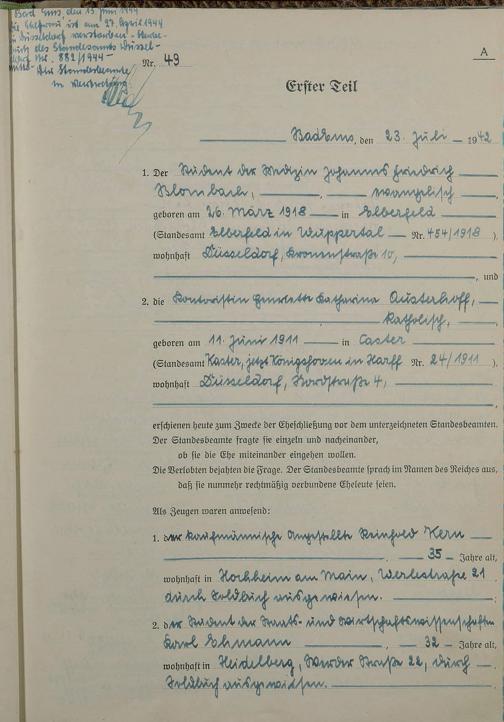 Bad Ems, den 13. Juni 1944
Die Ehefrau ist am 27. April 1944
in Düsseldorf verstorben - Sterbe-
buch des Standesamts Düssel-
dorf Nr. 882/1944 -
Der Standesbeamte
in Vertretung
A
Nr. 49
Erster Teil
Bad Ems, den 23. Juli 1942
1. Der Student der Medizin Johannes Friedrich
Blombach, evangelisch
geboren am 26. März 1918 in Elberfeld
(Standesamt Elberfeld in Wuppertal Nr. 454/1918).
wohnhaft Düsseldorf, Kronenstraße 10,
, und
2. die Kontoristin Henriette Katharina Austerhoff,
katholisch,
geboren am 11. Juni 1911 in Caster
(Standesamt Kaster, jetzt Königshoven in Harff Nr. 24/1911).
wohnhaft Düsseldorf, Nordstraße 4,
erschienen heute zum Zwecke der Eheschließung vor dem unterzeichneten Standesbeamten.
Der Standesbeamte fragte sie einzeln und nacheinander,
ob sie die Ehe miteinander eingehen wollen.
Die Verlobten bejahten die Frage. Der Standesbeamte sprach im Namen des Reiches aus,
daß sie nunmehr rechtmäßig verbundene Eheleute seien.
Als Zeugen waren anwesend:
1. der kaufmännische Angestellte Reinhold Kern
, 35 Jahre alt,
wohnhaft in Hochheim am Main, Werlestraße 21
durch Soldbuch ausgewiesen.
2. der Student der Staats- und Wirtschaftswissenschaften
Karl Ehmann, 32 Jahre alt,
wohnhaft in Heidelberg, Werder Straße 22, durch
Soldbuch ausgewiesen.